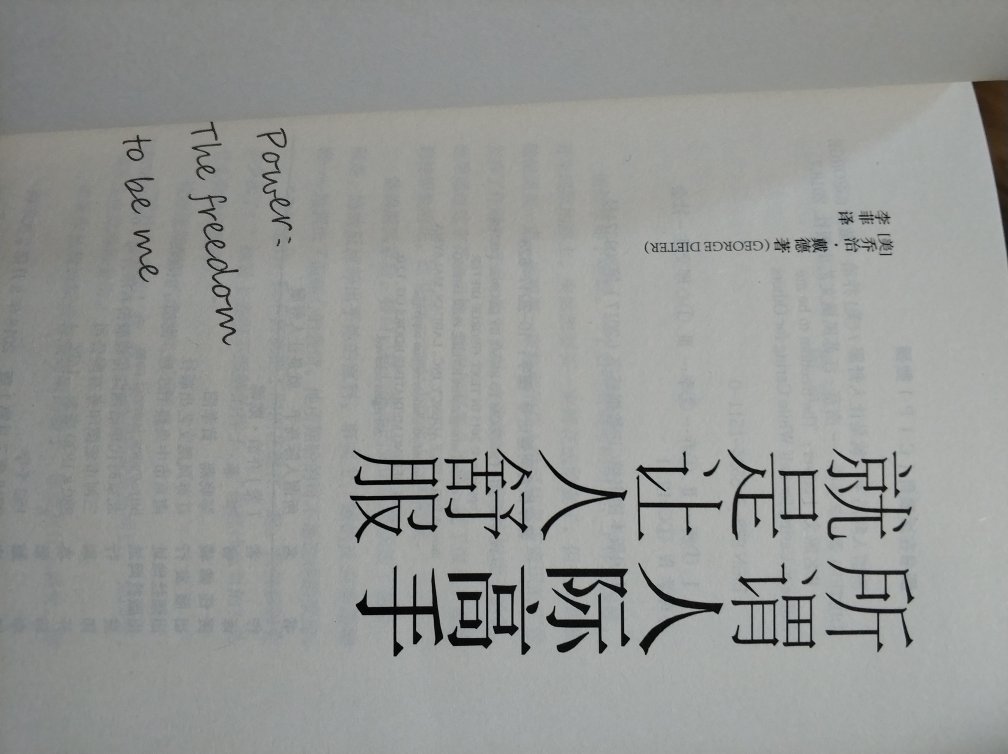 所谓人际高手
就是让人舒服
[美] 乔治·戴德 著 (GEORGE DIETER)
李菲 译
Power:
The freedom
to be me